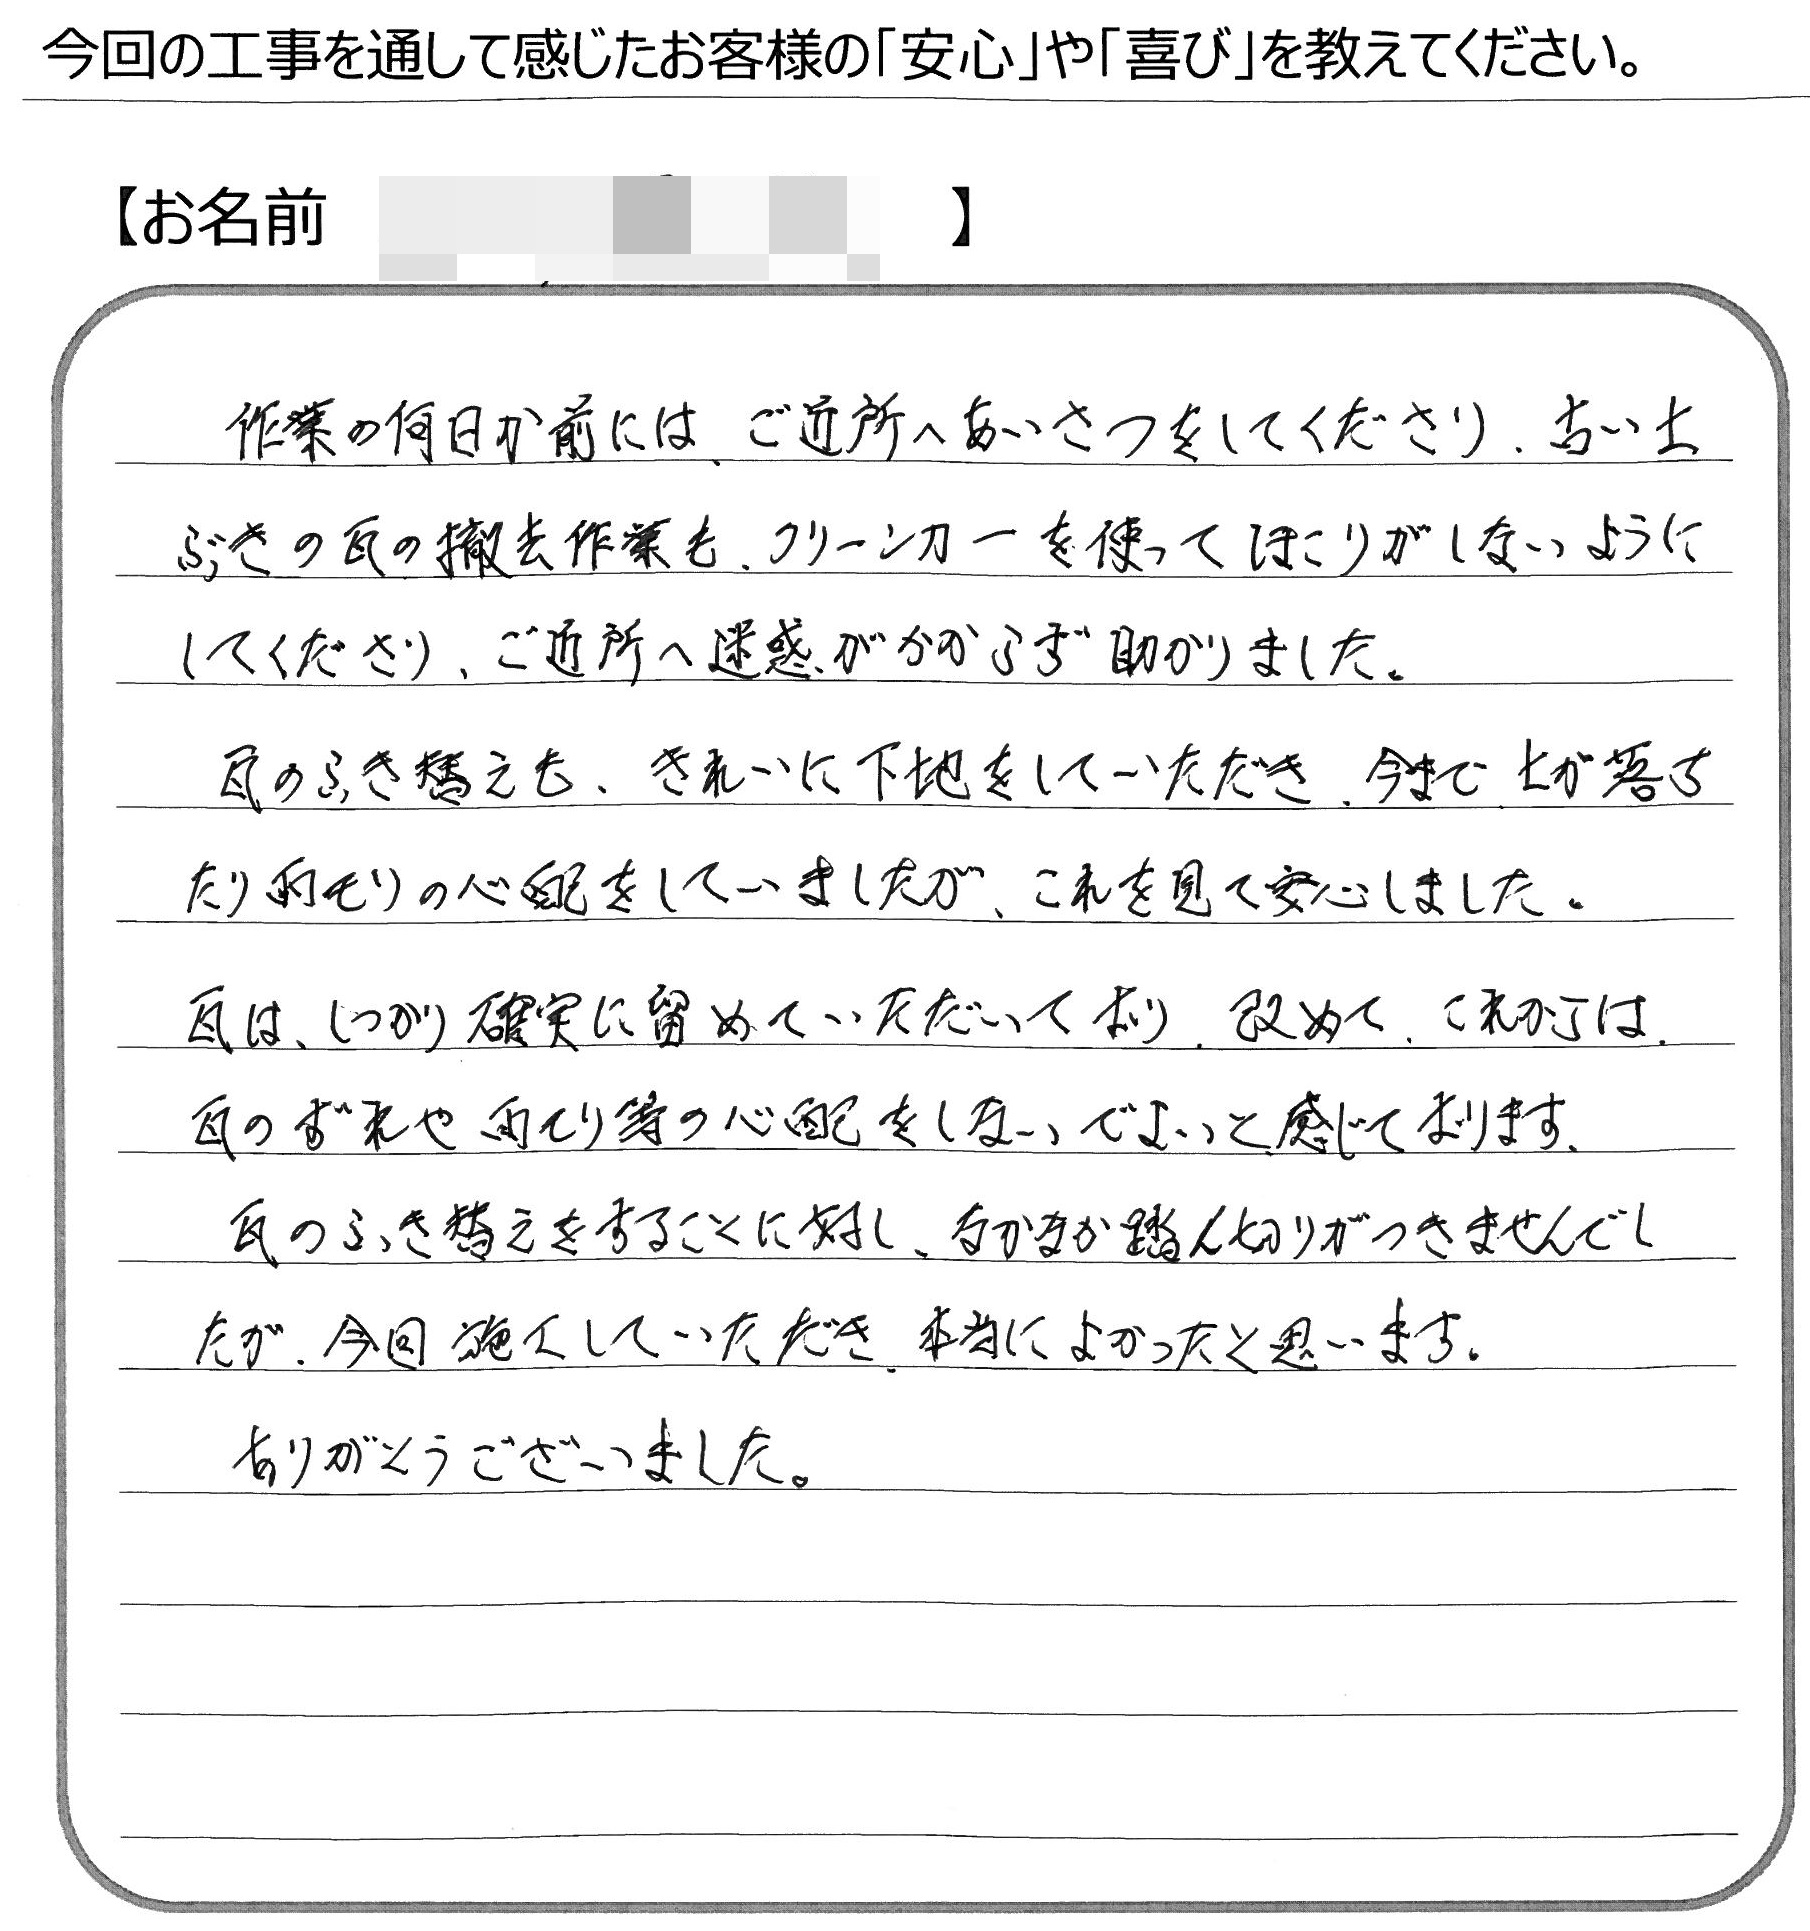 今回の工事を通して感じたお客様の「安心」や「喜び」を教えてください。
【お名前 】
作業の何日か前には、ご近所へあいさつをしてくださり、古い土
ぶきの瓦の撤去作業も、クリーンカーを使ってほこりがしないように
してくださり、ご近所へ迷惑がかからず助かりました。
瓦のふき替えも、きれいに下地をしていただき、今まで土が落ち
たり雨モリの心配をしていましたが、これを見て安心しました。
瓦は、しっかり確実に留めていただいており、改めて、これからは、
瓦のずれや雨もり等の心配をしないでよいと感じております。
瓦のふき替えをすることに対し、なかなか踏ん切りがつきませんでし
たが、今回施工していただき、本当によかったと思います。
ありがとうございました。